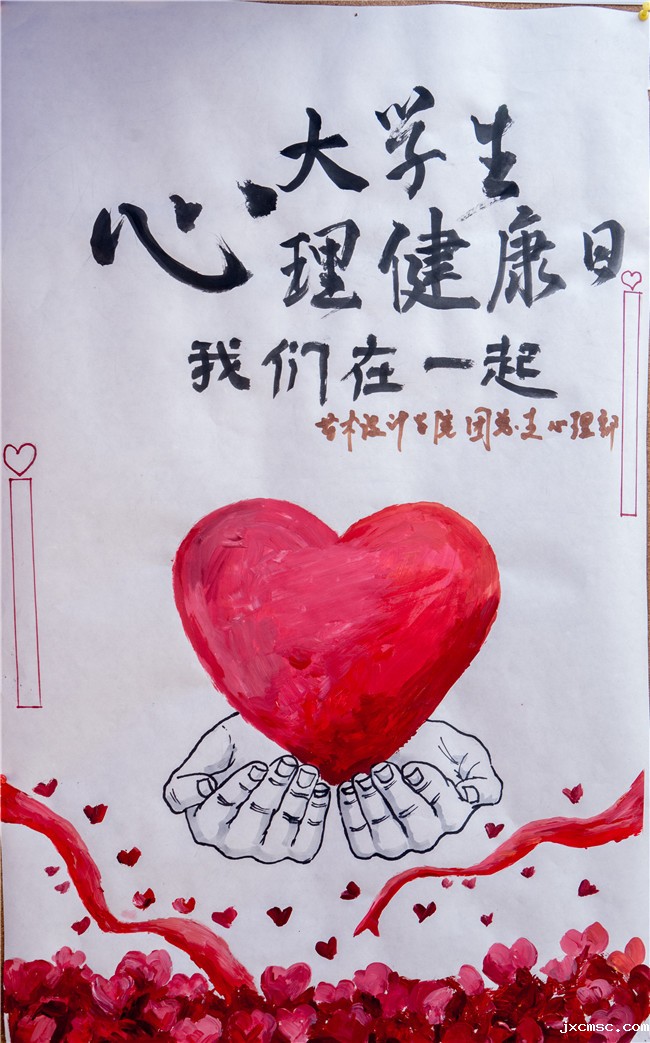 大学生
心理健康日
我们在一起
艺术设计学院团总支心理部
jxcmsc.com